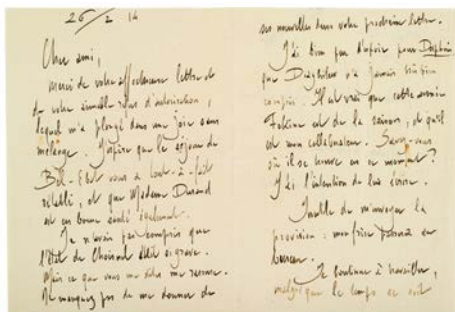 26/2 14
Cher ami,
Merci de votre affectueuse lettre et
de votre aimable d'autorisation,
lequel m'a plongé dans une joie sans
mélange. J'espère que le séjour de
Bel-Ebat vous a tout-à-fait
rétabli, et que Madame Durand
est en bonne santé également.
Je n'avais pas compris que
l'état de Choisnel était si grave.
Mais ce que vous me dites me rassure.
Ne manquez pas de me donner de
ses nouvelles dans votre prochaine lettre.
J'ai bien peu d'espoir pour Daphnis
que Diaghilew n'a jamais très bien
compris. Il est vrai que cette année
Fokine est de la saison, et qu'il
est mon collaborateur. Savez-vous
où il se trouve en ce moment?
J'ai l'intention de lui écrire.
Inutile de m'envoyer la
provision : mon frère passera au
bureau.
Je continue à travailler,
malgré que le temps se soit